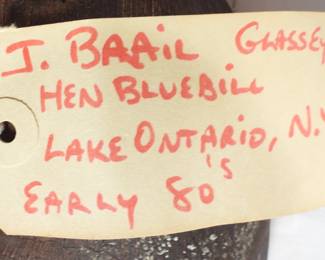 J. BRAIL GLASSEY
HEN BLUEBILL
LAKE ONTARIO, N.Y
EARLY 80'S